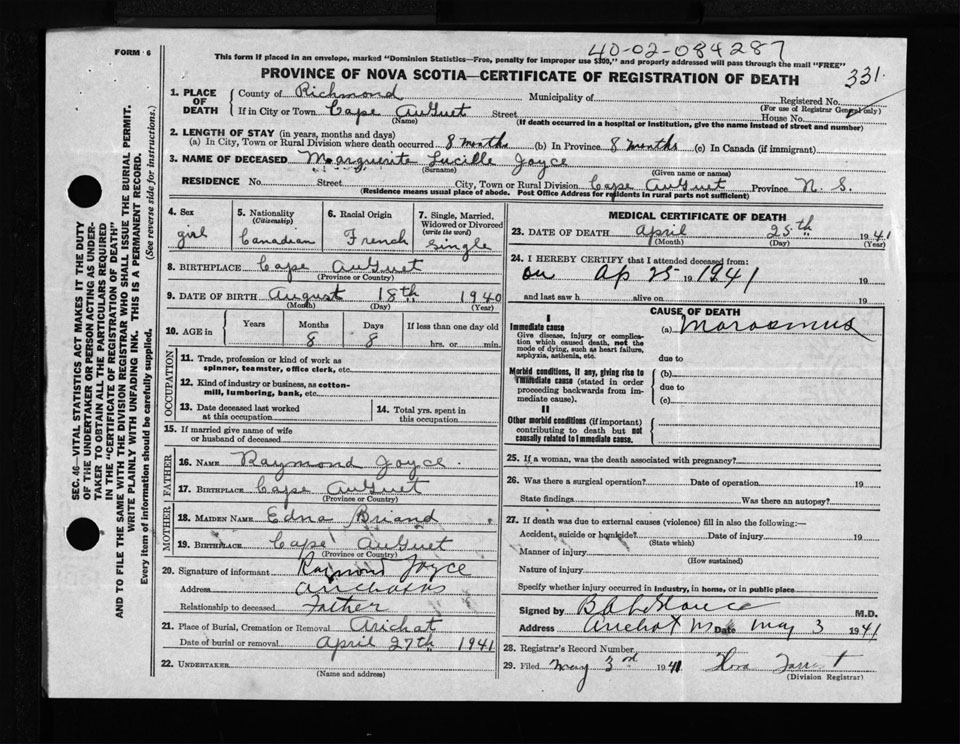 FORM 6
40-02-084287
This form if placed in an envelope, marked "Dominion Statistics—Free, penalty for improper use $300," and properly addressed will pass through the mail "FREE"
PROVINCE OF NOVA SCOTIA—CERTIFICATE OF REGISTRATION OF DEATH
331
1. PLACE OF DEATH
County of Richmond Municipality of Registered No.
(For use of Registrar General only)
If in City or Town Cape AuGuet Street House No.
(Name) (If death occurred in a hospital or institution, give the name instead of street and number)
2. LENGTH OF STAY (in years, months and days)
(a) In City, Town or Rural Division where death occurred 8 months (b) In Province 8 months (c) In Canada (if immigrant)
3. NAME OF DECEASED Marguerite Lucille Joyce
(Surname) (Given name or names)
RESIDENCE No. Street City, Town or Rural Division Cape AuGuet Province N. S.
(Residence means usual place of abode. Post Office Address for residents in rural parts not sufficient)
4. Sex girl
5. Nationality (Citizenship) Canadian
6. Racial Origin French
7. Single, Married, Widowed or Divorced (write the word) Single
8. BIRTHPLACE Cape AuGuet
(Province or Country)
9. DATE OF BIRTH August 18th 1940
(Month) (Day) (Year)
10. AGE in Years Months Days If less than one day old
8 8 hrs. or min.
OCCUPATION
11. Trade, profession or kind of work as spinner, teamster, office clerk, etc.
12. Kind of industry or business, as cotton-mill, lumbering, bank, etc.
13. Date deceased last worked at this occupation
14. Total yrs. spent in this occupation
15. If married give name of wife or husband of deceased
FATHER
16. NAME Raymond Joyce
17. BIRTHPLACE Cape AuGuet
(Province or Country)
MOTHER
18. MAIDEN NAME Edna Briand
19. BIRTHPLACE Cape AuGuet
(Province or Country)
20. Signature of informant Raymond Joyce
Address
Relationship to deceased Father
21. Place of Burial, Cremation or Removal Arichat
Date of burial or removal April 27th 1941
22. UNDERTAKER
(Name and address)
MEDICAL CERTIFICATE OF DEATH
23. DATE OF DEATH April 25th 1941
(Month) (Day) (Year)
24. I HEREBY CERTIFY that I attended deceased from:
on Ap 25 1941 19
and last saw h alive on 19
CAUSE OF DEATH
I
Immediate cause
Give disease, injury or complication which caused death, not the mode of dying, such as heart failure, asphyxia, asthenia, etc.
(a) Marasmus
due to
Morbid conditions, if any, giving rise to immediate cause (stated in order proceeding backwards from immediate cause).
(b)
due to
(c)
II
Other morbid conditions (if important) contributing to death but not causally related to immediate cause.
25. If a woman, was the death associated with pregnancy?
26. Was there a surgical operation? Date of operation 19
State findings Was there an autopsy?
27. If death was due to external causes (violence) fill in also the following:—
Accident, suicide or homicide? Date of injury 19
(State which)
Manner of injury
(How sustained)
Nature of injury
Specify whether injury occurred in industry, in home, or in public place
Signed by M.D.
Address Arichat NS Date May 3 1941
28. Registrar's Record Number
29. Filed May 3rd 1941
(Division Registrar)
SEC. 46—VITAL STATISTICS ACT MAKES IT THE DUTY
OF THE UNDERTAKER OR PERSON ACTING AS UNDER-
TAKER TO OBTAIN ALL THE PARTICULARS REQUIRED
IN THE "CERTIFICATE OF REGISTRATION OF DEATH"
AND TO FILE THE SAME WITH THE DIVISION REGISTRAR WHO SHALL ISSUE THE BURIAL PERMIT.
WRITE PLAINLY WITH UNFADING INK. THIS IS A PERMANENT RECORD.
Every item of information should be carefully supplied. (See reverse side for instructions.)